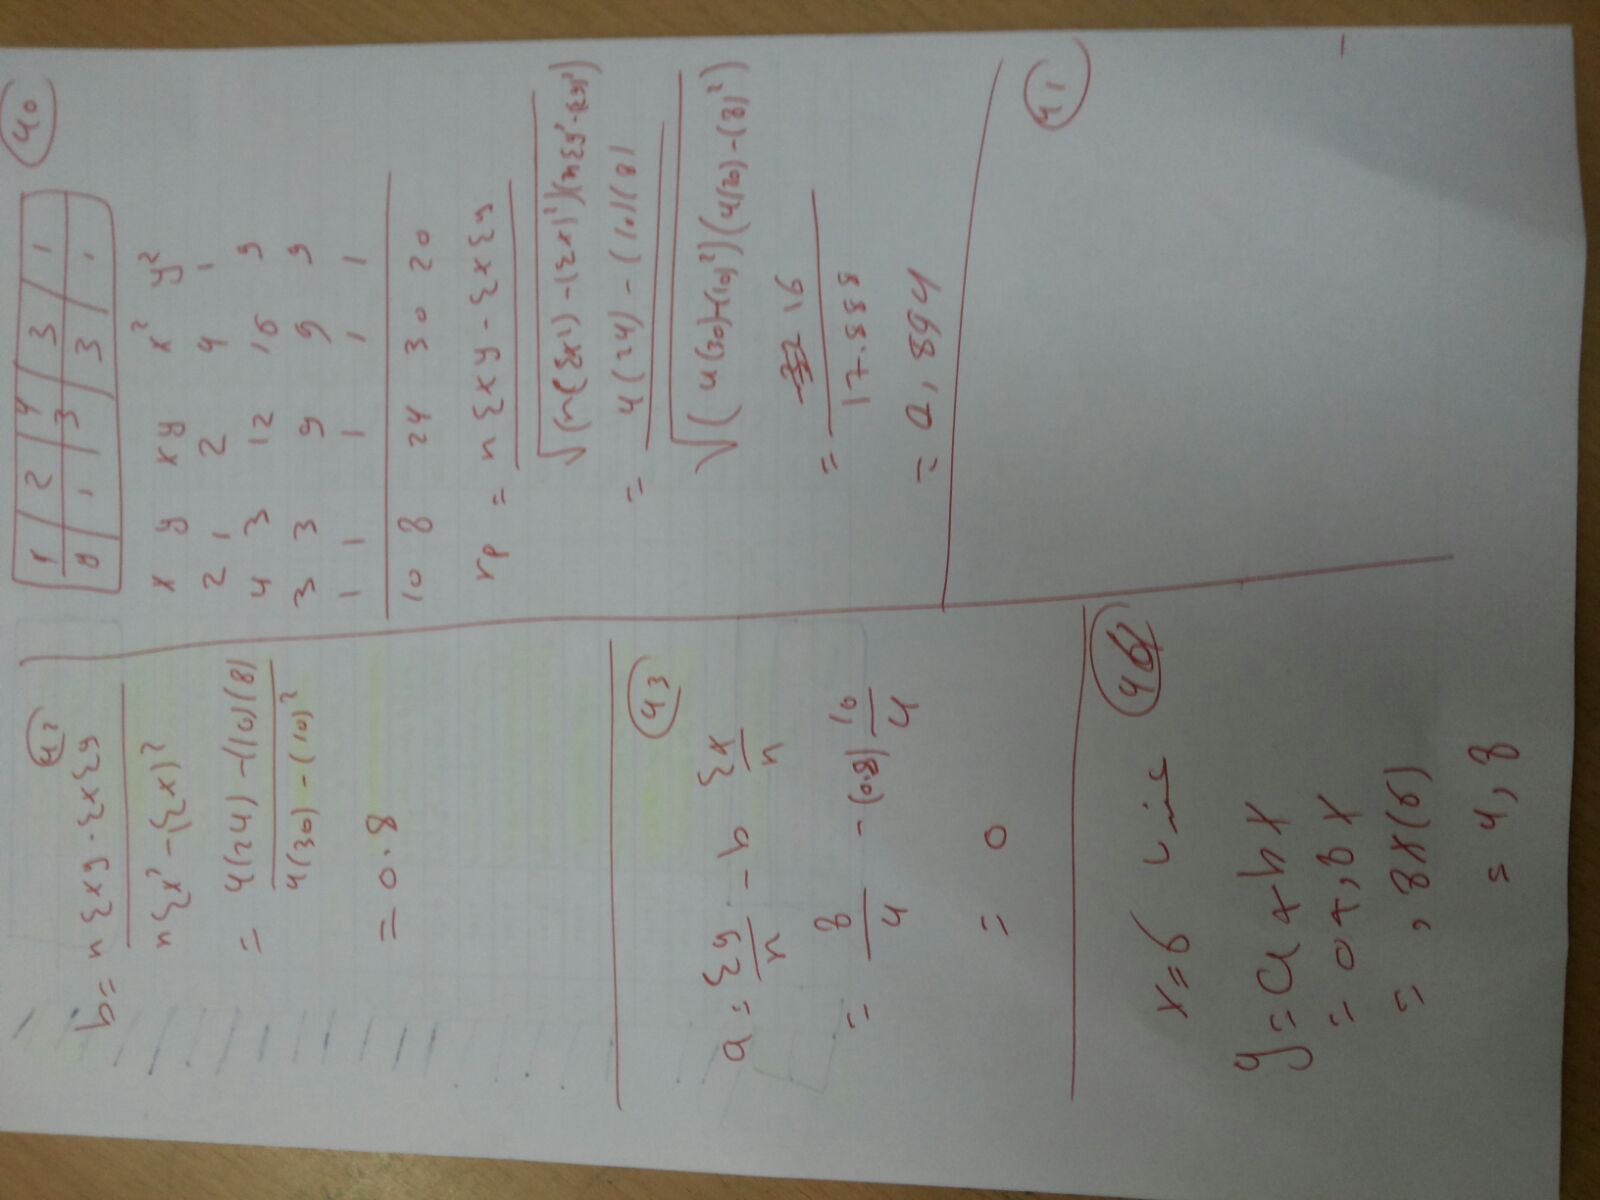 40
x | 2 | 4 | 3 | 1
y | 1 | 3 | 3 | 1
x y xy x² y²
2 1 2 4 1
4 3 12 16 9
3 3 9 9 9
1 1 1 1 1
10 8 24 30 20
rp = nΣxy - ΣxΣy
√(n(Σx²) - (Σx)²)(nΣy² - (Σy)²)
= 4(24) - (10)(8)
√(4(30)-(10)²)(4(20)-(8)²)
= 16
17.888
= 0,894
41
42
b = nΣxy - ΣxΣy
nΣx² - (Σx)²
= 4(24) - (10)(8)
4(30) - (10)²
= 0.8
43
a = Σy/n - b Σx/n
= 8/4 - (0.8) 10/4
= 0
x = 6
y = a + bx
= 0 + ,8x
= ,8x(6)
= 4,8